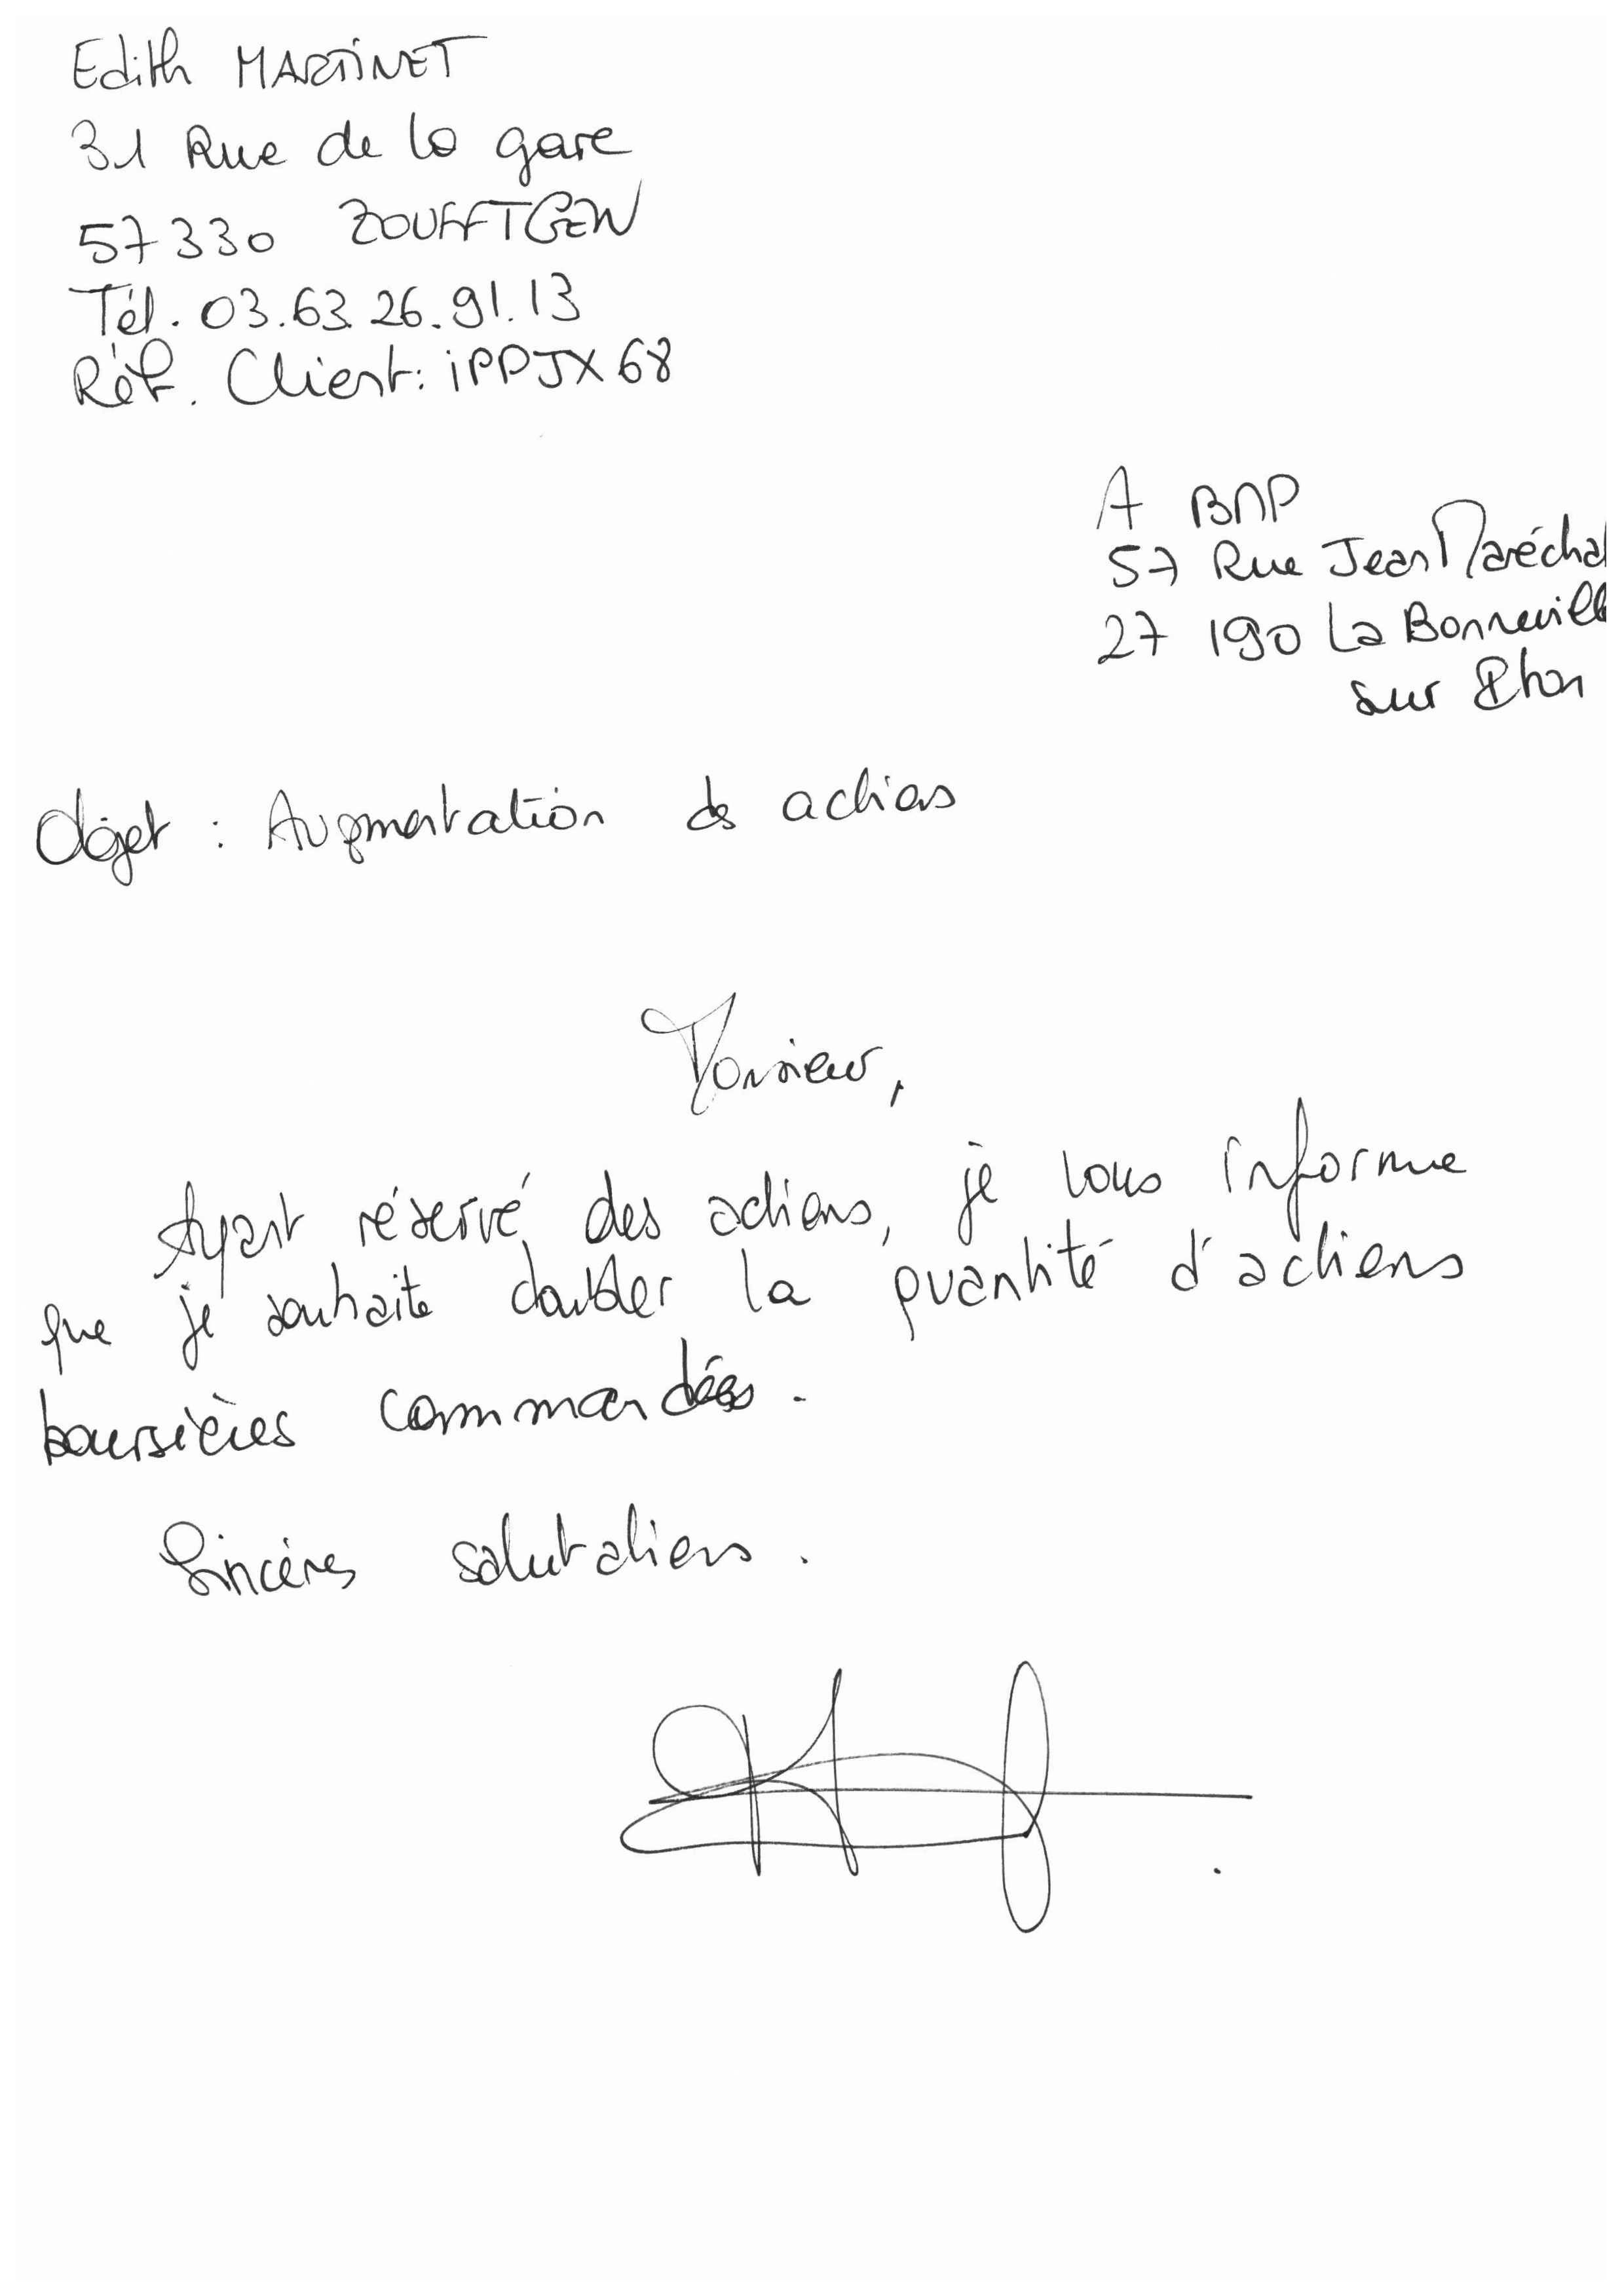 Edith MARTINET
31 Rue de la gare
57330 ZOUFFTGEN
Tél. 03.63.26.91.13
Réf. Client: iPPJX68
A BNP
57 Rue Jean Maréchal
27 190 La Bonneville
sur
Objet : Augmentation des actions
Monsieur,
Ayant réservé des actions, je vous informe
que je souhaite doubler la quantité d'actions
boursières commandées.
Sincères salutations.